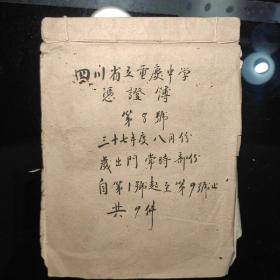 四川省立重慶中学
憑證簿
第8號
三十七年度八月份
歲出門常時部份
自第1號起至第9號止
共9件